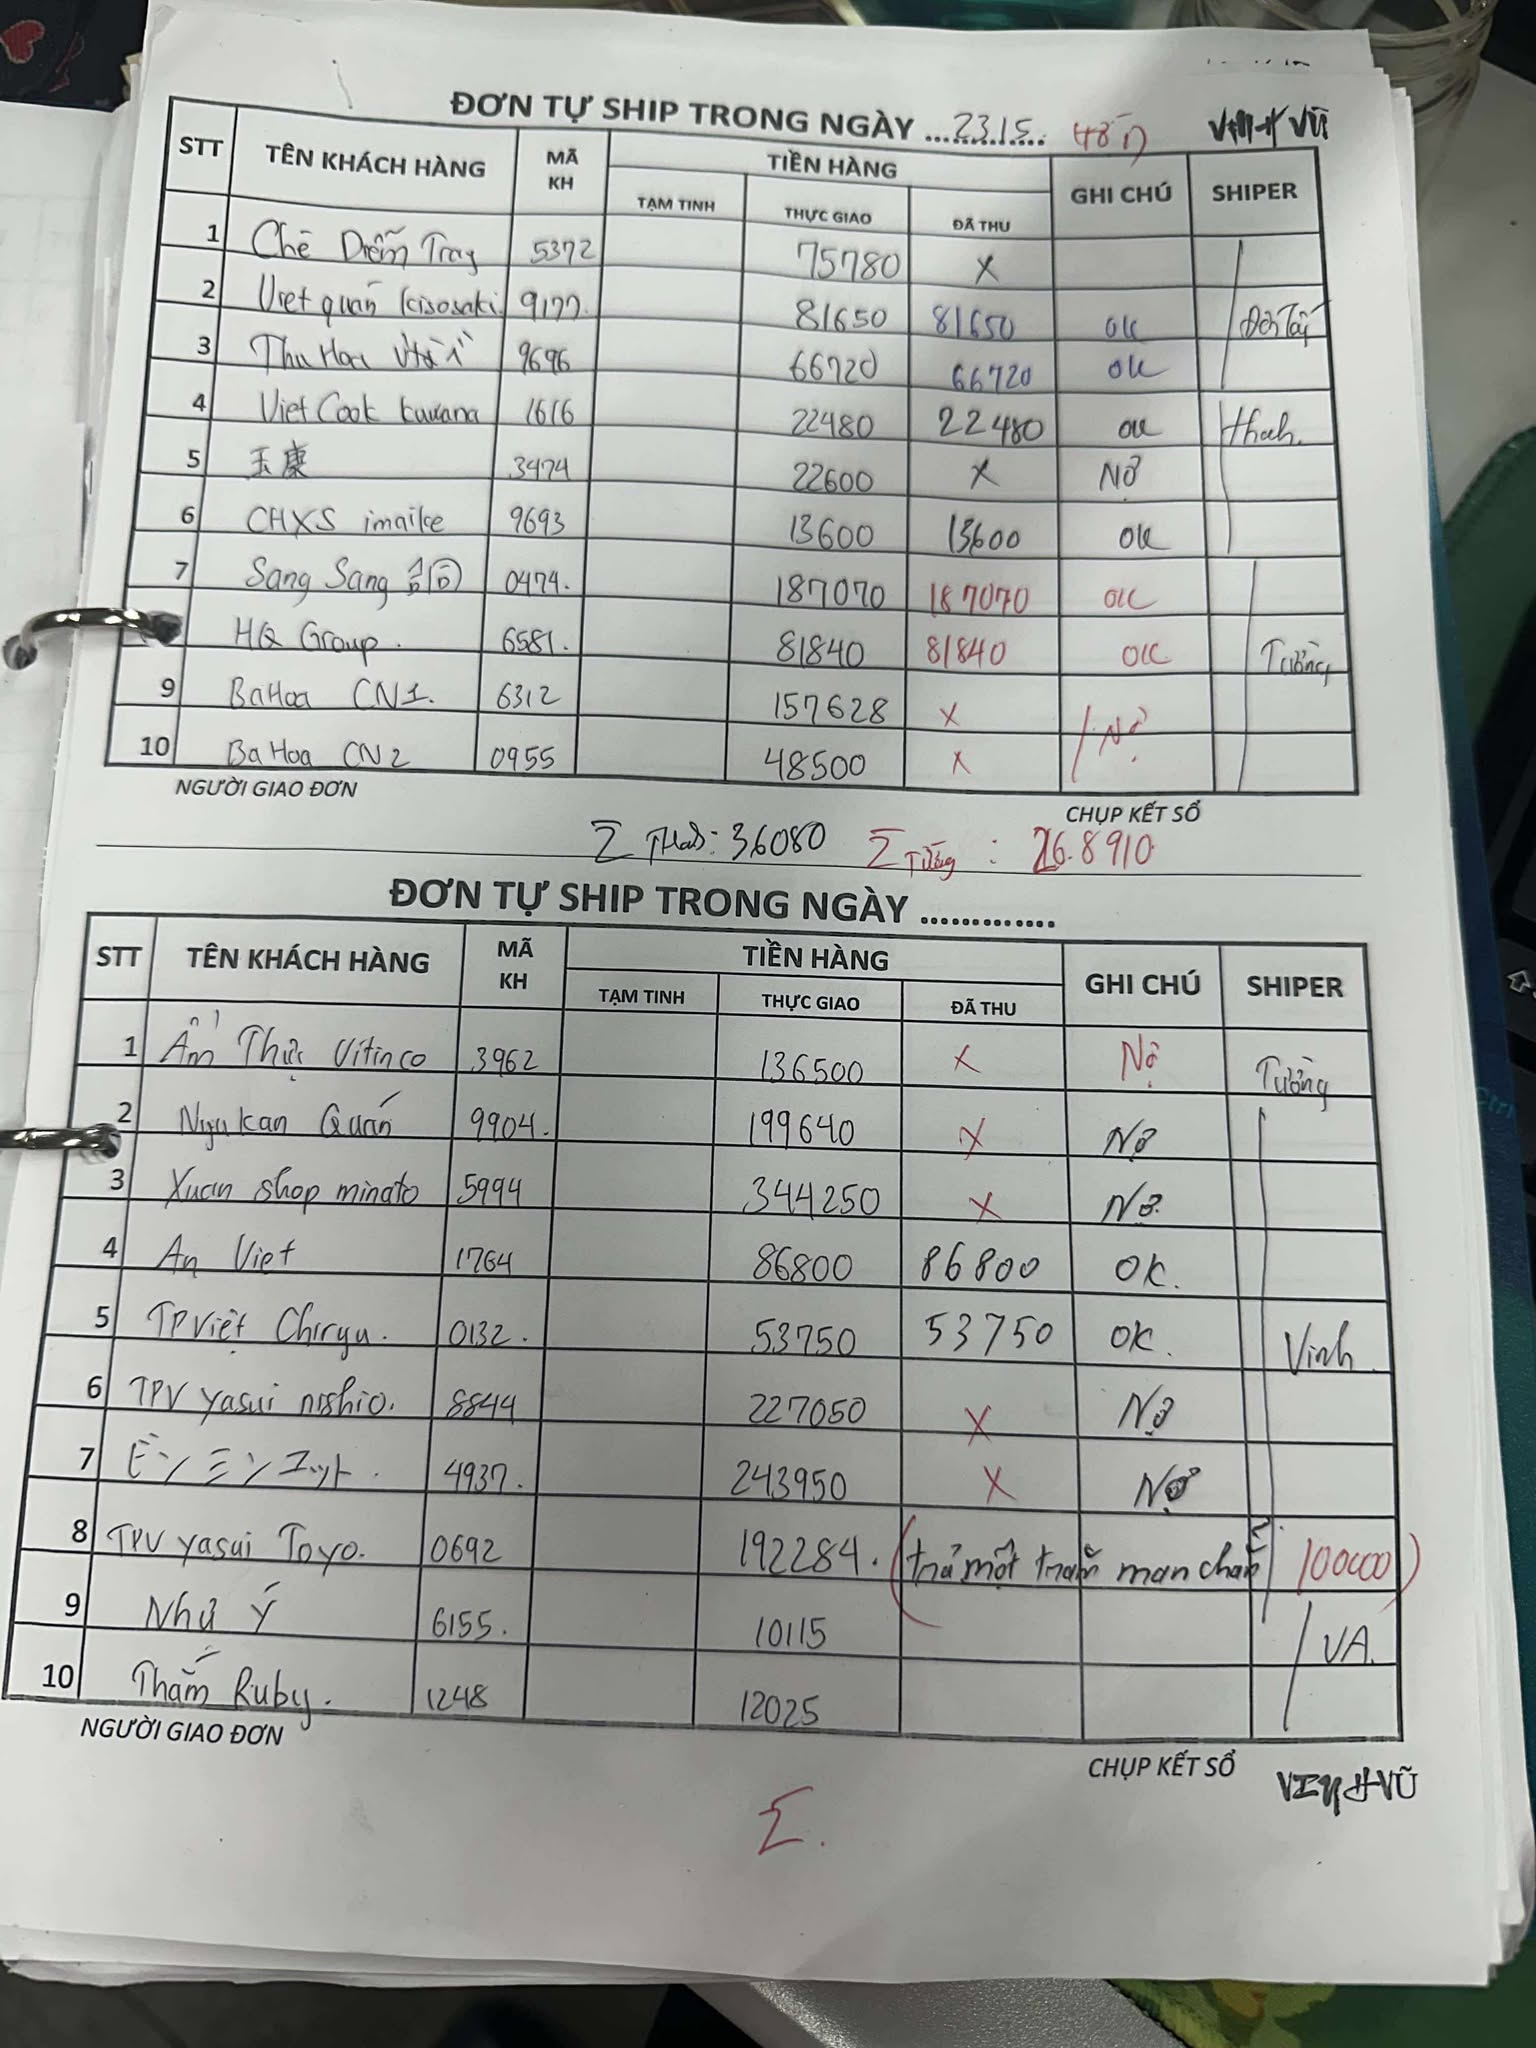 ĐƠN TỰ SHIP TRONG NGÀY ...23.15...
STT TÊN KHÁCH HÀNG MÃ KH TIỀN HÀNG GHI CHÚ SHIPER
TẠM TINH THỰC GIAO ĐÃ THU
1 Chè Diễm Trang 5372 75780 X
2 Việt quán kisosaki 9177. 81650 81650 OK
3 Thu Hoa 9696 66720 66720 OK
4 Viet Cook kuwana 1616 22480 22480 OK Thanh.
5 玉康 3474 22600 X NỢ
6 CHXS imaike 9693 13600 13600 OK
7 Sang Sang 0474. 187070 187070 OK
HQ Group. 6581. 81840 81840 OK Tường
9 Ba Hoa CN1. 6312 157628 X Nợ
10 Ba Hoa CN2 0955 48500 X
NGƯỜI GIAO ĐƠN CHỤP KẾT SỔ
Σ Thanh: 36080 Σ Tường : 26.8910
ĐƠN TỰ SHIP TRONG NGÀY .............
STT TÊN KHÁCH HÀNG MÃ KH TIỀN HÀNG GHI CHÚ SHIPER
TẠM TINH THỰC GIAO ĐÃ THU
1 Ẩm Thực Vitinco 3962 136500 X Nợ Tường
2 Ngu kan Quán 9904. 199640 X Nợ
3 Xuan shop minato 5994 344250 X Nợ.
4 An Viet 1764 86800 86800 OK.
5 TP Việt Chiryu. 0132. 53750 53750 OK. Vinh
6 TPV yasui nishio. 8844 227050 X Nợ
7 ビンミンエット. 4937. 243950 X Nợ
8 TPV yasui Toyo. 0692 192284. (trả một trăm man chẵn 100000)
9 Như Ý 6155. 10115 VA.
10 Thắm Ruby. 1248 12025
NGƯỜI GIAO ĐƠN CHỤP KẾT SỔ
VINH VŨ
Σ.